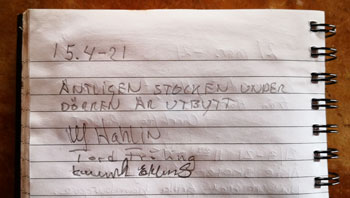 15.4-21
ÄNTLIGEN STOCKEN UNDER
DÖRREN ÄR UTBYTT
Hahlin
Tord Fröling